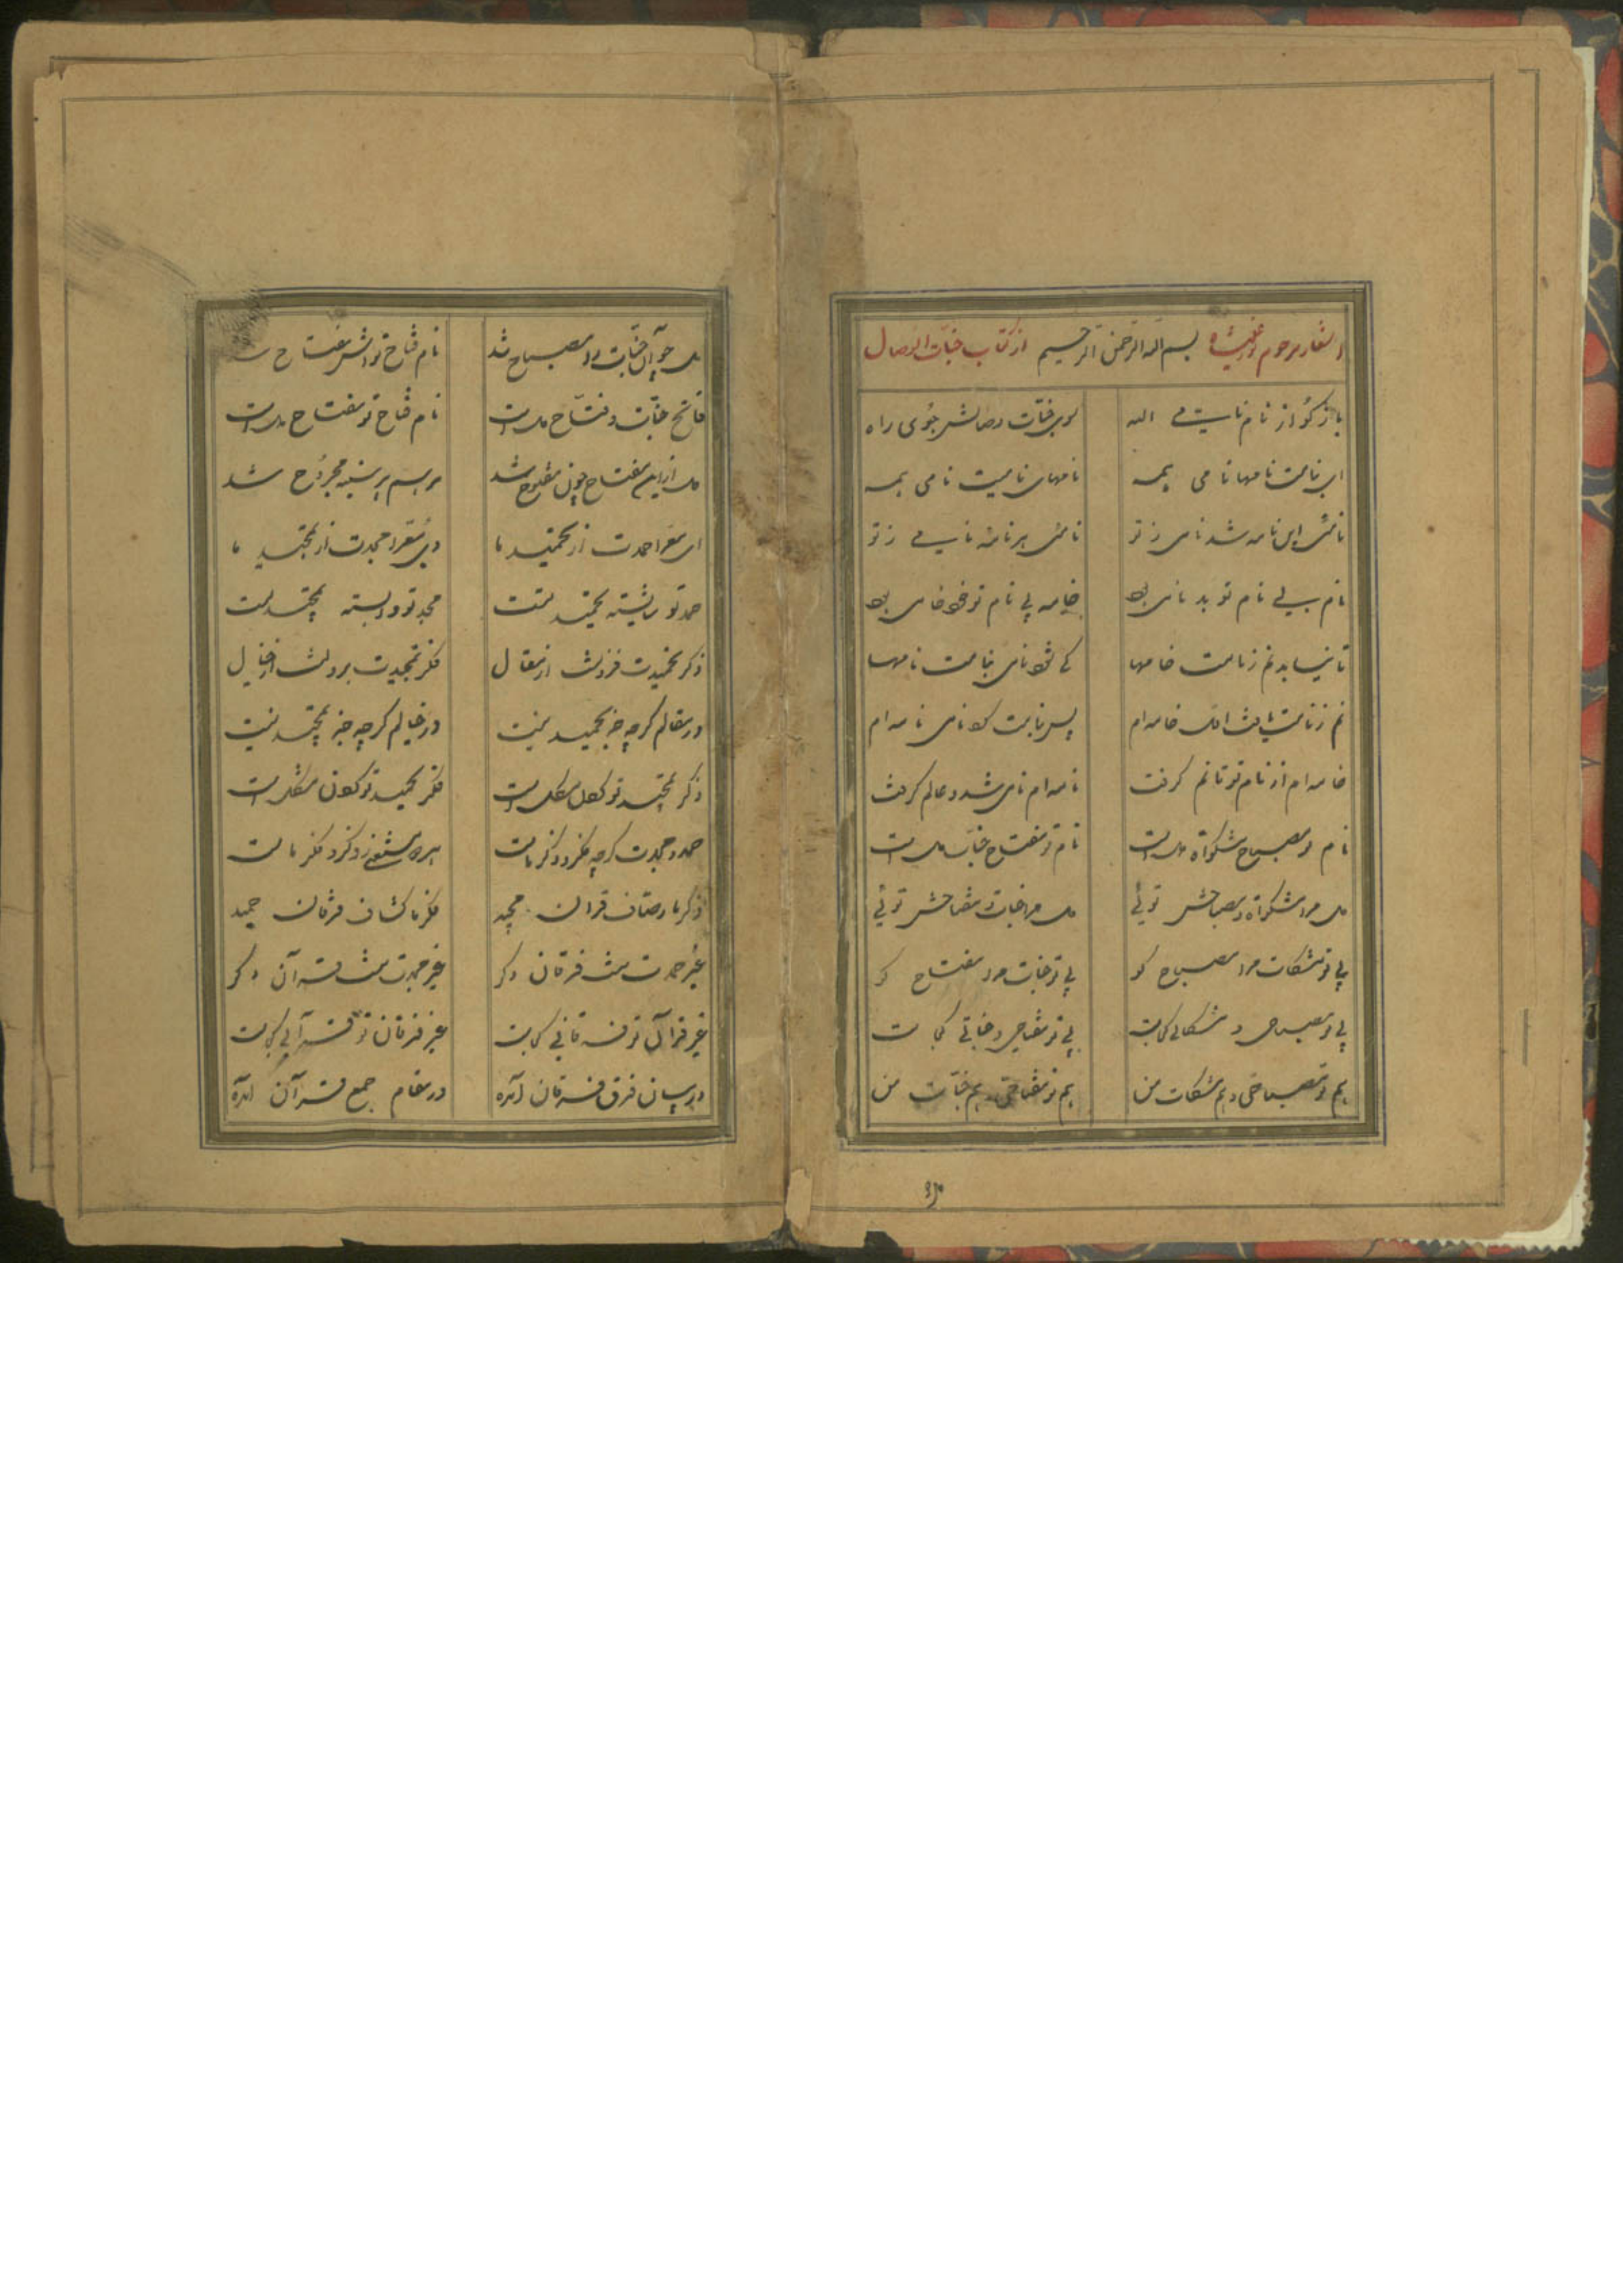 بسم الله الرحمن الرحیم از کتاب جنات الوصال
بازگو از نام نامی اله
سوی جنات وصالش جوی راه
ای بنامت نامها نامی همه
نامهای نامیت نامی همه
نامی این نامه شد نامی ز تو
نامی هر نامه نامی ز تو
نام بی نام تو بد نامی بود
خامه بی نام تو خود خامی بود
تا نیابد نم ز نامت خامها
کی شود نامی بنامت نامها
نم ز نامت یافت اینک خامه ام
پس بنامت گو نامی نامه ام
خامه ام از نام تو تا نم گرفت
نامه ام نامی شد و عالم گرفت
نام تو مصباح مشکوة دل است
نام تو مفتاح جنات دل است
دل مرا مشکوة و مصباحش توئی
دل مرا جنات و مفتاحش توئی
بی تو مشکات مرا مصباح کو
بی تو جنات مرا مفتاح کو
بی تو مصباحی و مشکاتی کجاست
بی تو مفتاحی و جناتی کجاست
هم تو مصباحی و هم مشکات من
هم تو مفتاحی و هم جنات من
دل چو آن جنات را مصباح شد
نام فتاح تواش مفتاح شد
فاتح جنات و فتاح دل است
نام فتاح تو مفتاح دل است
دل از این مفتاح چون مفتوح شد
مرهم هر سینه مجروح شد
ای مبرا حمدت از تحمید ما
وی معرا مجدت از تمجید ما
حمد تو شایسته تحمید تست
مجد تو وابسته تمجید تست
ذکر تحمیدت فزونست از مقال
فکر تمجیدت برونست از خیال
در مقالم گرچه جز تحمید نیست
در خیالم گرچه جز تمجید نیست
ذکر تمجید تو گفتن مشکل است
فکر تحمید تو کردن مشکل است
حمد و مجدت گرچه فکر و ذکر ماست
هر دو مستغنی ز ذکر و فکر ماست
ذکر ما وصاف قرآن مجید
فکر ما کشاف فرقان حمید
غیر حمدت نیست فرقان دگر
غیر مجدت نیست قرآن دگر
غیر قرآن تو فرقانی کجاست
غیر فرقان تو قرآنی کجاست
در بیان فرق فرقان آمده
در مقام جمع قرآن آمده